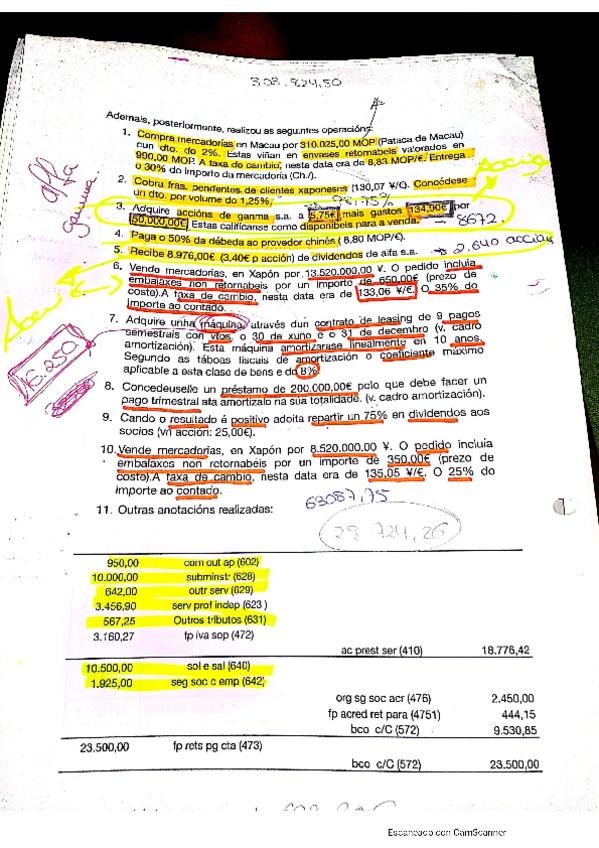 303.824,50
Ademais, posteriormente, realizou as seguintes operacións:
1. Compra mercadorías en Macau por 310.025,00 MOP (Pataca de Macau)
cun dto. de 2%. Estas viñan en envases retornabeis valorados en
990,00 MOP. A taxa de cambio, nesta data era de 8,83 MOP/€. Entrega
o 30% do importo da mercadoría (Ch./).
2. Cobra fras. pendentes de clientes xaponeses (130,07 ¥/€). Concédese
un dto. por volume do 1,25%.
98,75%
3. Adquire accións de ganma s.a. a 5,75€ mais gastos 134,90€ por
50.000,00€. Estas califícanse como disponibeis para a venda.
8672
4. Paga o 50% da débeda ao provedor chinés (8,80 MOP/€).
5. Recibe 8.976,00€ (3,40€ p acción) de dividendos de alfa s.a.
2.640 accións
6. Vende mercadorías, en Xapón por 13.520.000,00 ¥. O pedido incluía
embalaxes non retornabeis por un importe de 650,00€ (prezo de
coste).A taxa de cambio, nesta data era de 133,06 ¥/€. O 35% do
importe ao contado.
7. Adquire unha máquina, através dun contrato de leasing de 9 pagos
semestrais con vtos. o 30 de xuño e o 31 de decembro (v. cadro
amortización). Esta máquina amortizarase linealmente en 10 anos.
Segundo as táboas fiscais de amortización o coeficiente máximo
aplicable a esta clase de bens e do 8%
16.250
8. Concedeuselle un préstamo de 200.000,00€ pelo que debe facer un
pago trimestral ata amortizalo na sua totalidade. (v. cadro amortización).
9. Cando o resultado é positivo adoita repartir un 75% en dividendos aos
socios (vn acción: 25,00€).
10. Vende mercadorías, en Xapón por 8.520.000,00 ¥. O pedido incluía
embalaxes non retornabeis por un importe de 350,00€ (prezo de
coste).A taxa de cambio, nesta data era de 135,05 ¥/€. O 25% do
importe ao contado.
63087,75
11. Outras anotacións realizadas:
28 724,26
alfa
ganma
950,00 com out ap (602)
10.000,00 subministr (628)
642,00 outr serv (629)
3.456,90 serv prof indep (623 )
567,25 Outros tributos (631)
3.160,27 fp iva sop (472)
ac prest ser (410) 18.776,42
10.500,00 sol e sal (640)
1.925,00 seg soc c emp (642)
org sg soc acr (476) 2.450,00
fp acred ret para (4751) 444,15
bco c/C (572) 9.530,85
23.500,00 fp rets pg cta (473)
bco c/C (572) 23.500,00
Escaneado con CamScanner